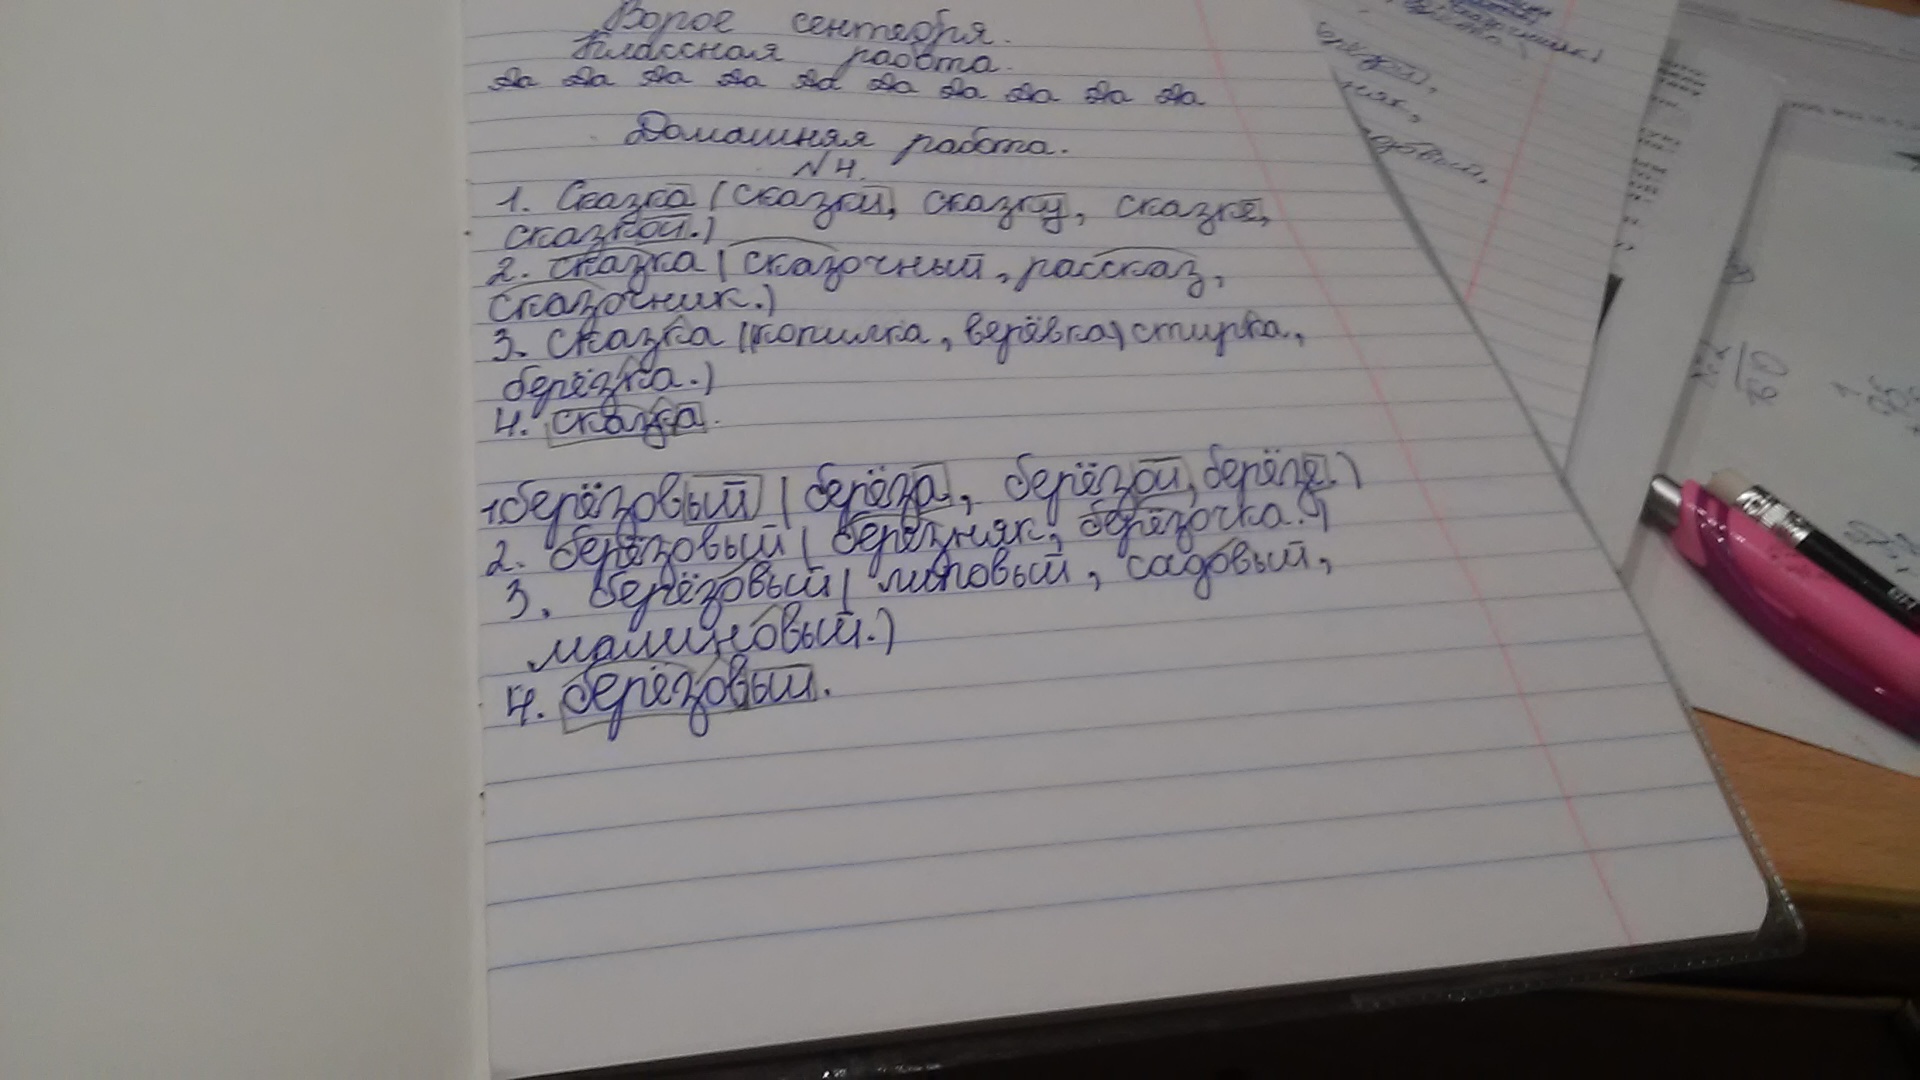 Второе сентября.
Классная работа.
Да Да Да Да Да Да Да Да Да Да
Домашняя работа.
N 4.
1. Сказка (сказки, сказку, сказке,
сказкой.)
2. сказка (сказочный, рассказ,
сказочник.)
3. сказка (копилка, верёвка, стирка,
берёзка.)
4. сказка.
1. берёзовый (берёза, берёзой, берёзе.)
2. берёзовый (березняк, берёзочка.)
3. берёзовый (липовый, садовый,
малиновый.)
4. берёзовый.